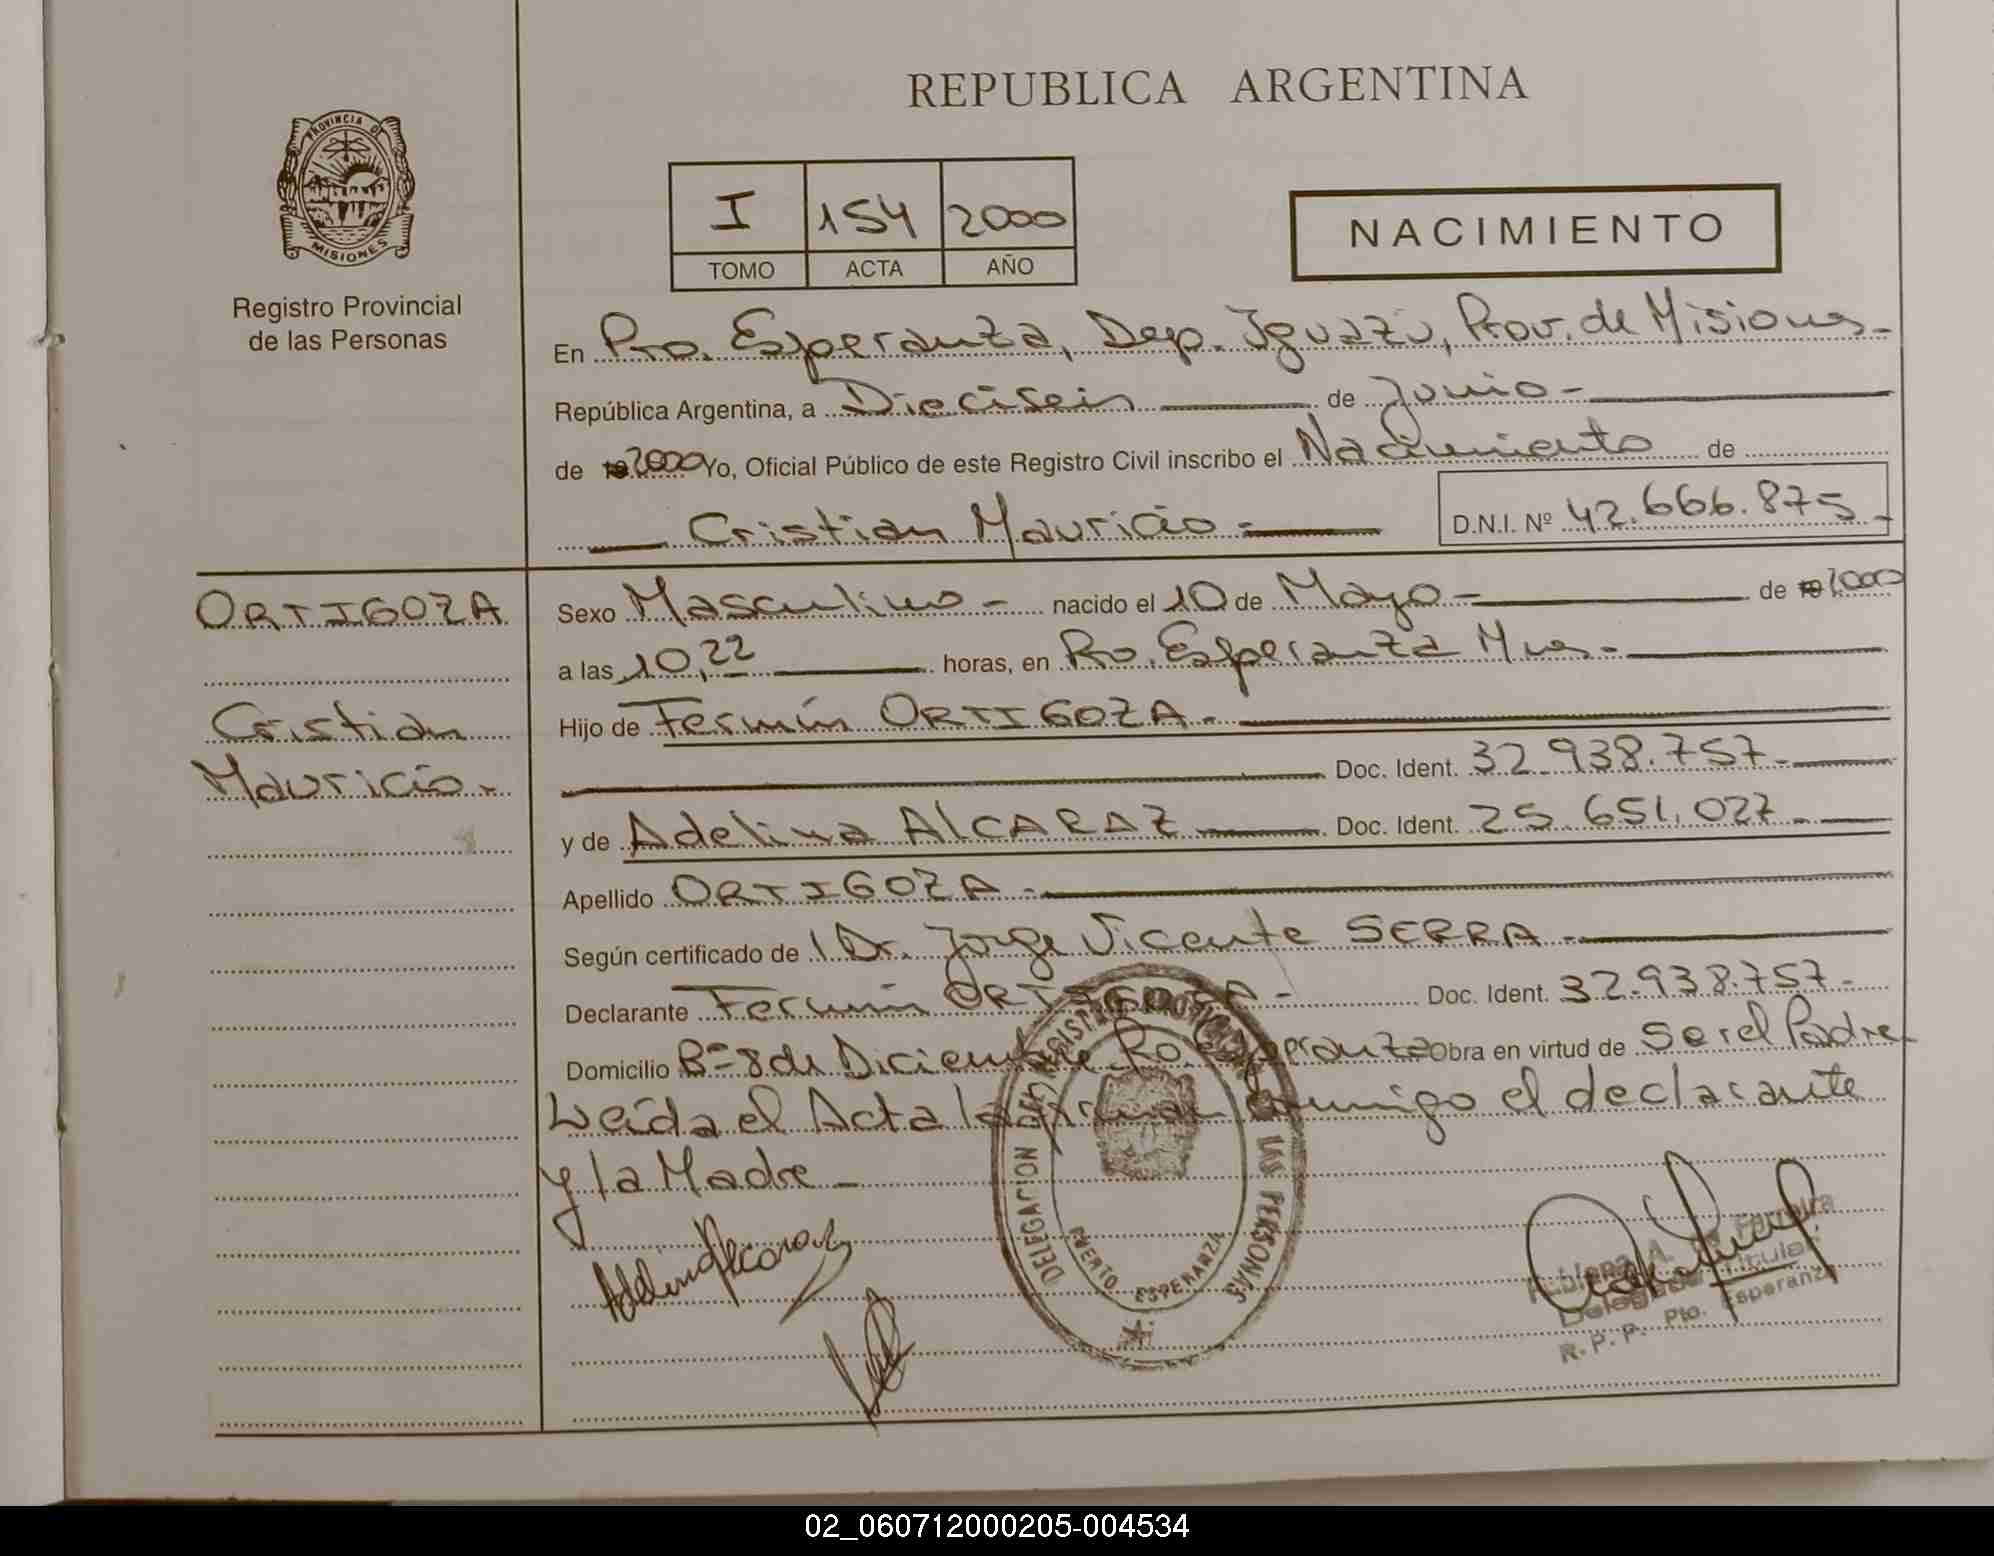 REPUBLICA ARGENTINA
PROVINCIA D
MISIONES
Registro Provincial
de las Personas
I 154 2000
TOMO ACTA AÑO
NACIMIENTO
En Pto. Esperanza, Dep. Iguazú, Prov. de Misiones-
República Argentina, a Dieciseis de Junio-
de 2000 Yo, Oficial Público de este Registro Civil inscribo el Nacimiento de
Cristian Mauricio- D.N.I. Nº 42.666.875-
ORTIGOZA
Cristian
Mauricio-
Sexo Masculino- nacido el 10 de Mayo- de 2000
a las 10,22 horas, en Pto. Esperanza Mnes-
Hijo de Fermín ORTIGOZA-
Doc. Ident. 32.938.757-
y de Adelina AlCARAZ Doc. Ident. 25.651.027-
Apellido ORTIGOZA-
Según certificado de Dr. Jorge Vicente SERRA-
Declarante Fermín ORTIGOZA- Doc. Ident. 32.938.757-
Domicilio Bº 8 de Diciembre Pto. Esperanza Obra en virtud de Ser el Padre
Leída el Acta la firman conmigo el declarante
y la Madre-
DELEGACION DEL REGISTRO PROVINCIAL DE LAS PERSONAS
PUERTO ESPERANZA
Ferreira
Titular
R.P.P. Pto. Esperanza
02_060712000205-004534